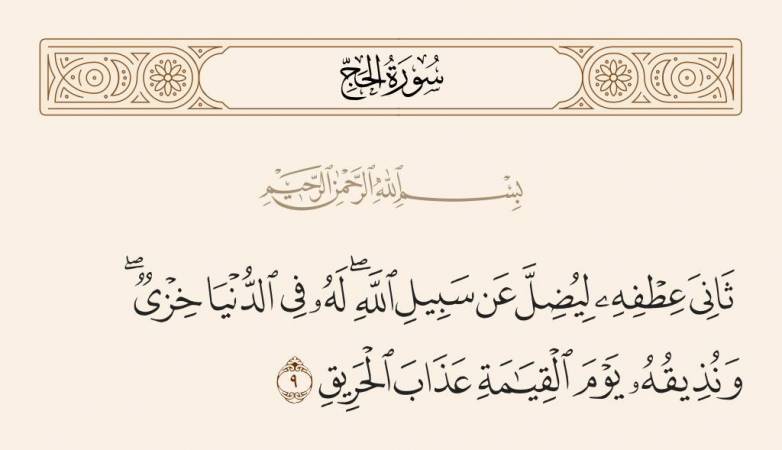 سُورَةُ الحَجِّ
بِسْمِ ٱللَّهِ ٱلرَّحْمَٰنِ ٱلرَّحِيمِ
ثَانِىَ عِطْفِهِۦ لِيُضِلَّ عَن سَبِيلِ ٱللَّهِ ۖ لَهُۥ فِى ٱلدُّنْيَا خِزْىٌ ۖ
وَنُذِيقُهُۥ يَوْمَ ٱلْقِيَٰمَةِ عَذَابَ ٱلْحَرِيقِ ٩